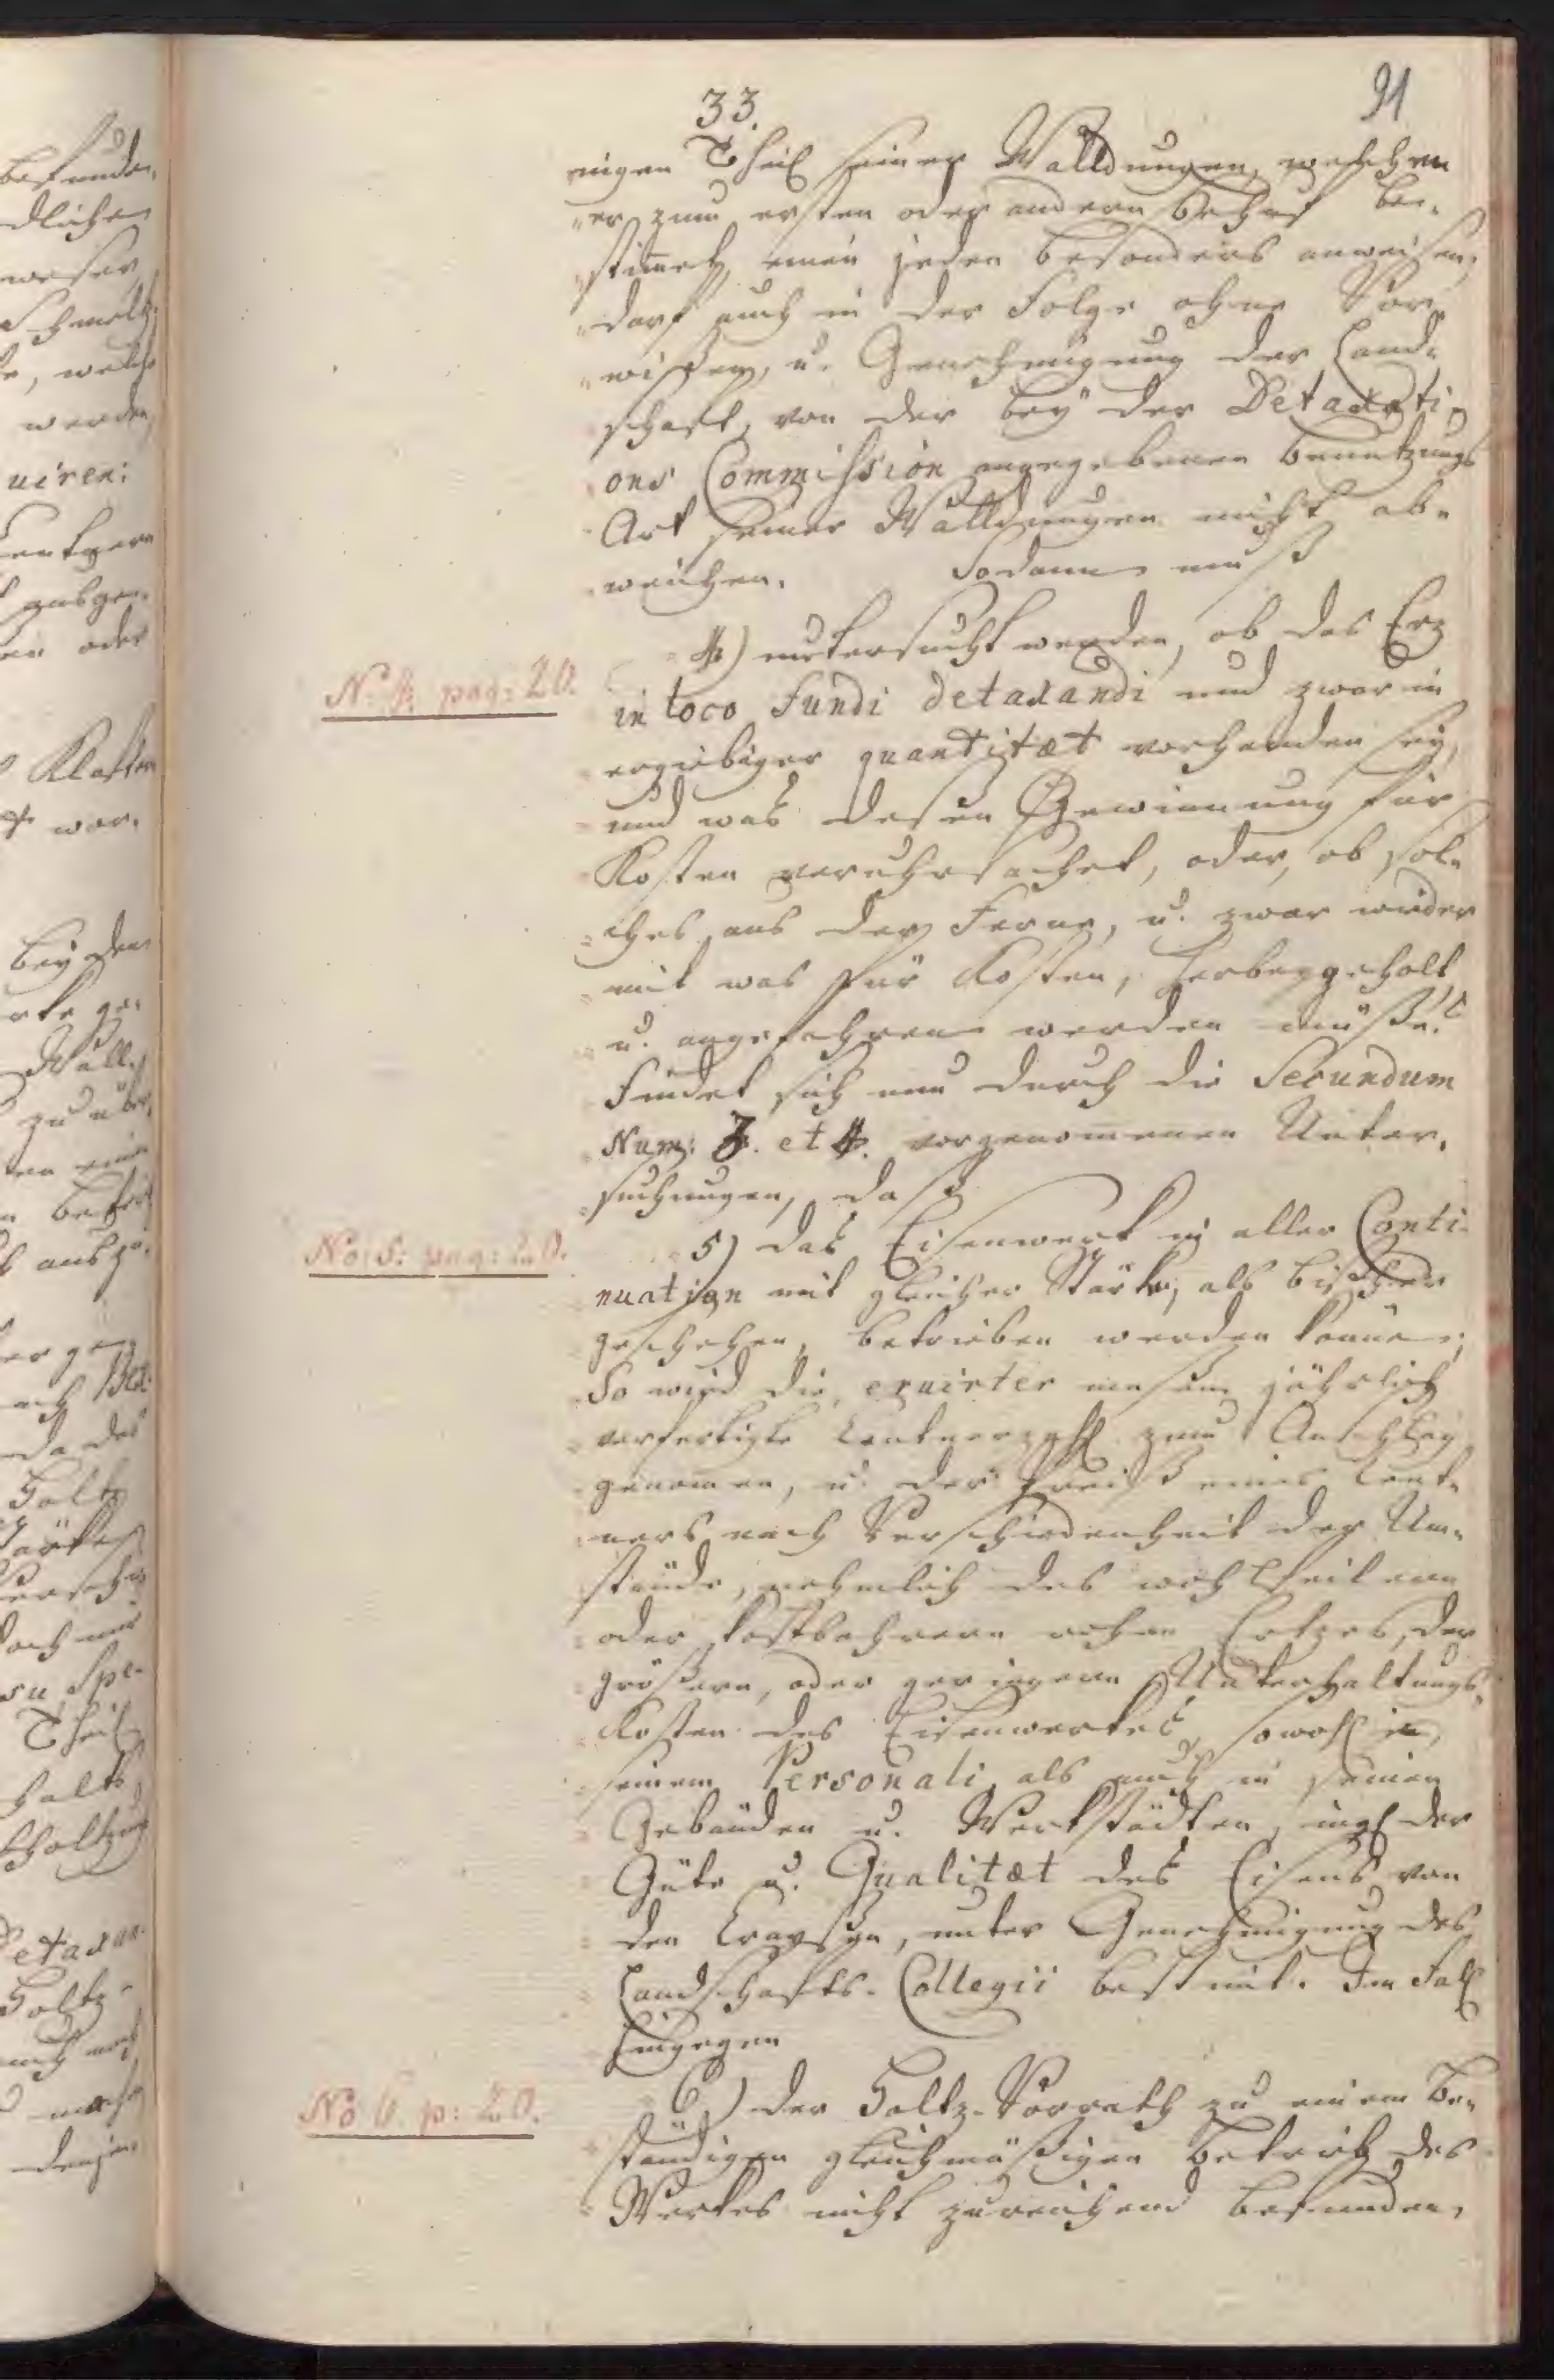 33.
91
nigen Theil seiner Walldungen, welchen
er zum ersten oder andern Behuf be-
stimmet, einen jeden besonders anweisen,
darf auch in der Folge ohne Vor-
wissen, u. Genehmigung der Land-
schaft, von der bey der Detaxati-
ons Commission angegebenen Benutzungs
Art seiner Walldungen nicht ab-
weichen. Sodann muß
4) untersucht werden, ob das Erz
in loco fundi detaxandi und zwar in
ergiebiger quantitæt vorhanden sey,
und was deßen Gewinnung für
Kosten veruhrsachet, oder, ob sol-
ches aus der Ferne, u. zwar wieder
mit was für Kosten, herbeygeholt
u. angefahren werden müße.
Findet sich nun durch die Secundum
Num: 3. et 4. vorgenommenen Unter-
suchungen, daß
5) das Eisenwerk in aller Conti-
nuation mit gleicher Stärke, als bißher
geschehen, betrieben werden könne,
So wird die, eruirter maßen jährlich
verfertigte Centnerzahl zum Anschlag
genommen, u. der Preiß eines Cent-
ners nach Verschiedenheit der Um-
stände, nehmlich des wohlfeilern
oder kostbahrern rohen Ertzes, der
größern, oder geringern Unterhaltungs-
Kosten des Eisenwerkes, sowohl in
seinem Personali, als auch in seinen
Gebäuden u. Werkstädten, ingl. der
Güte u. Qualitæt des Eisens von
den Craysen, unter Genehmigung des
Landschafts-Collegii bestimt. Im Fall
hingegen
6) der Holtz-Vorrath zu einem be-
ständigen gleichmäßigen Betrieb des
Werkes nicht zureichend befunden,
N. 4. pag: 20.
No: 5: pag: 20.
No 6. p: 20.